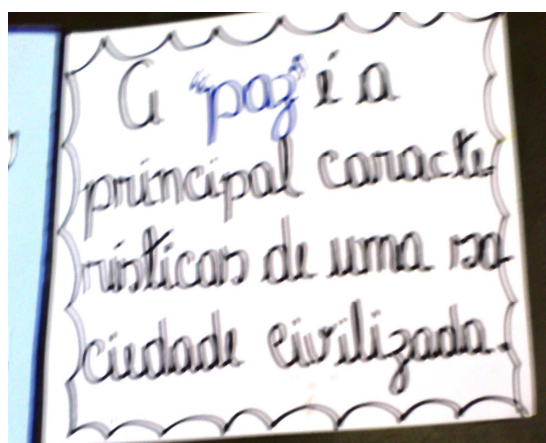 A "paz" é a
principal caracte
rísticas de uma so
ciedade civilizada.